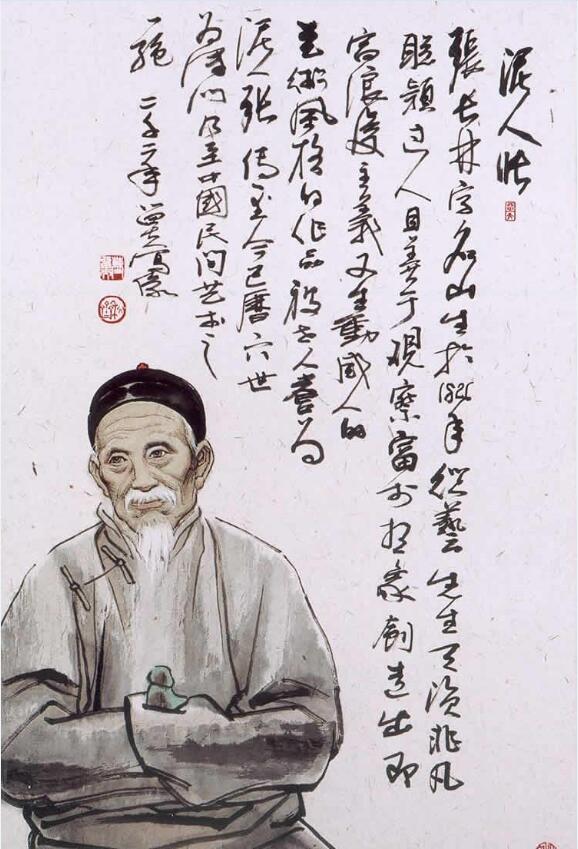 泥人张
張长林字名山生於1826年從藝先生天资非凡
聪颖过人且善于观察富于想象創造出即
富浪漫主義又生動感人的
艺術風格的作品被世人誉为
泥人張傳至今已曆六世
为津门乃至中國民间艺术之
一绝 二千二年 写像